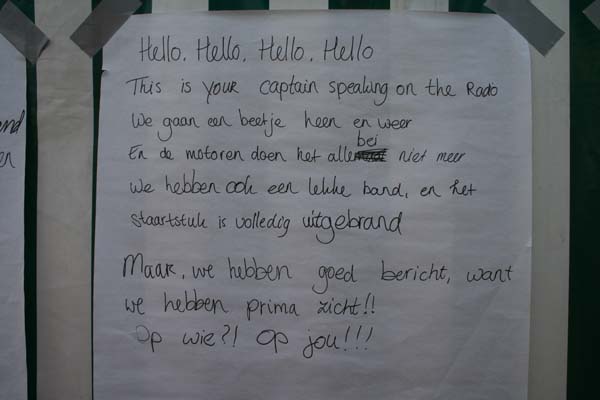 nd
en
Hello, Hello, Hello, Hello
This is your captain speaking on the Radio
We gaan een beetje heen en weer
bei
En de motoren doen het alle niet meer
We hebben ook een lekke band, en het
staartstuk is volledig uitgebrand
Maar, we hebben goed bericht, want
we hebben prima zicht!!
Op wie?! Op jou!!!